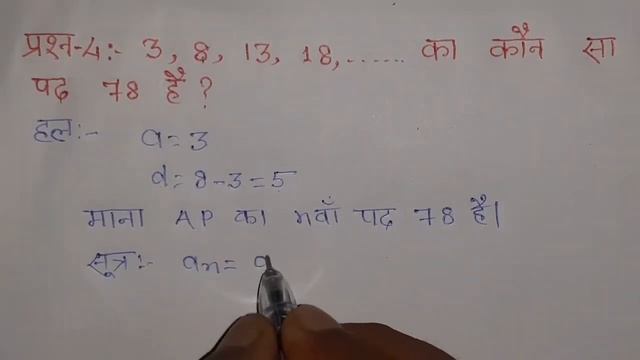 प्रश्न-4:- 3, 8, 13, 18, ...... का कौन सा
पद 78 है?
हल:- a = 3
d = 8 - 3 = 5
माना AP का nवाँ पद 78 है।
सूत्र:- an = a